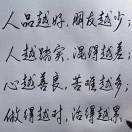 人品越好，朋友越少；
人越踏实，混得越差；
心越善良，苦难越多；
做得越对，活得越累。